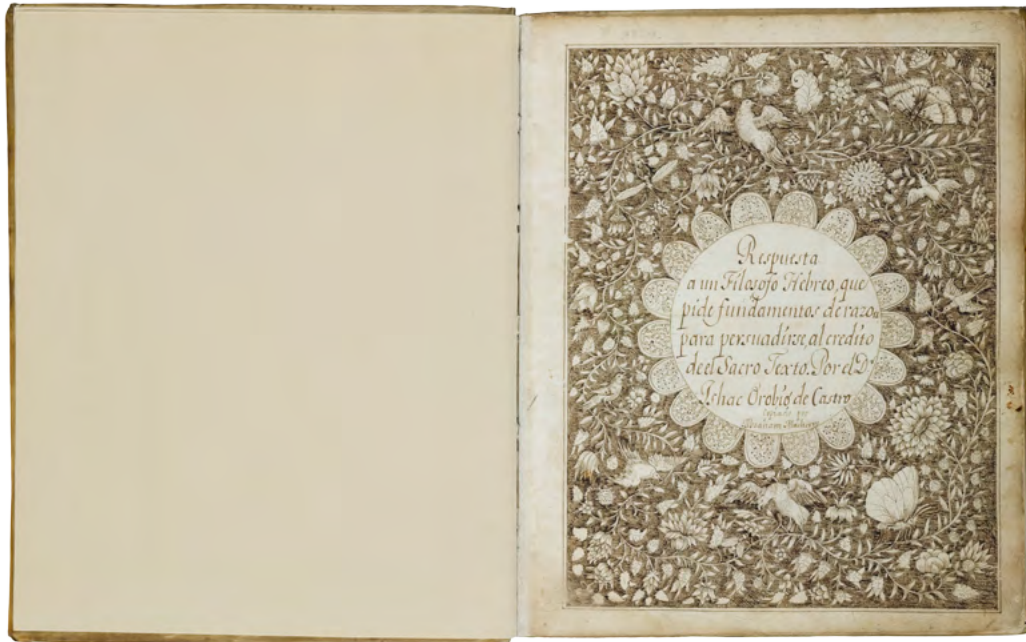 Respuesta
a un Filosofo Hebreo, que
pide fundamentos de razon
para persuadirse, al credito
de el Sacro Texto. Por el D.r
Ishac Orobio de Castro
Copiado por
Abraham